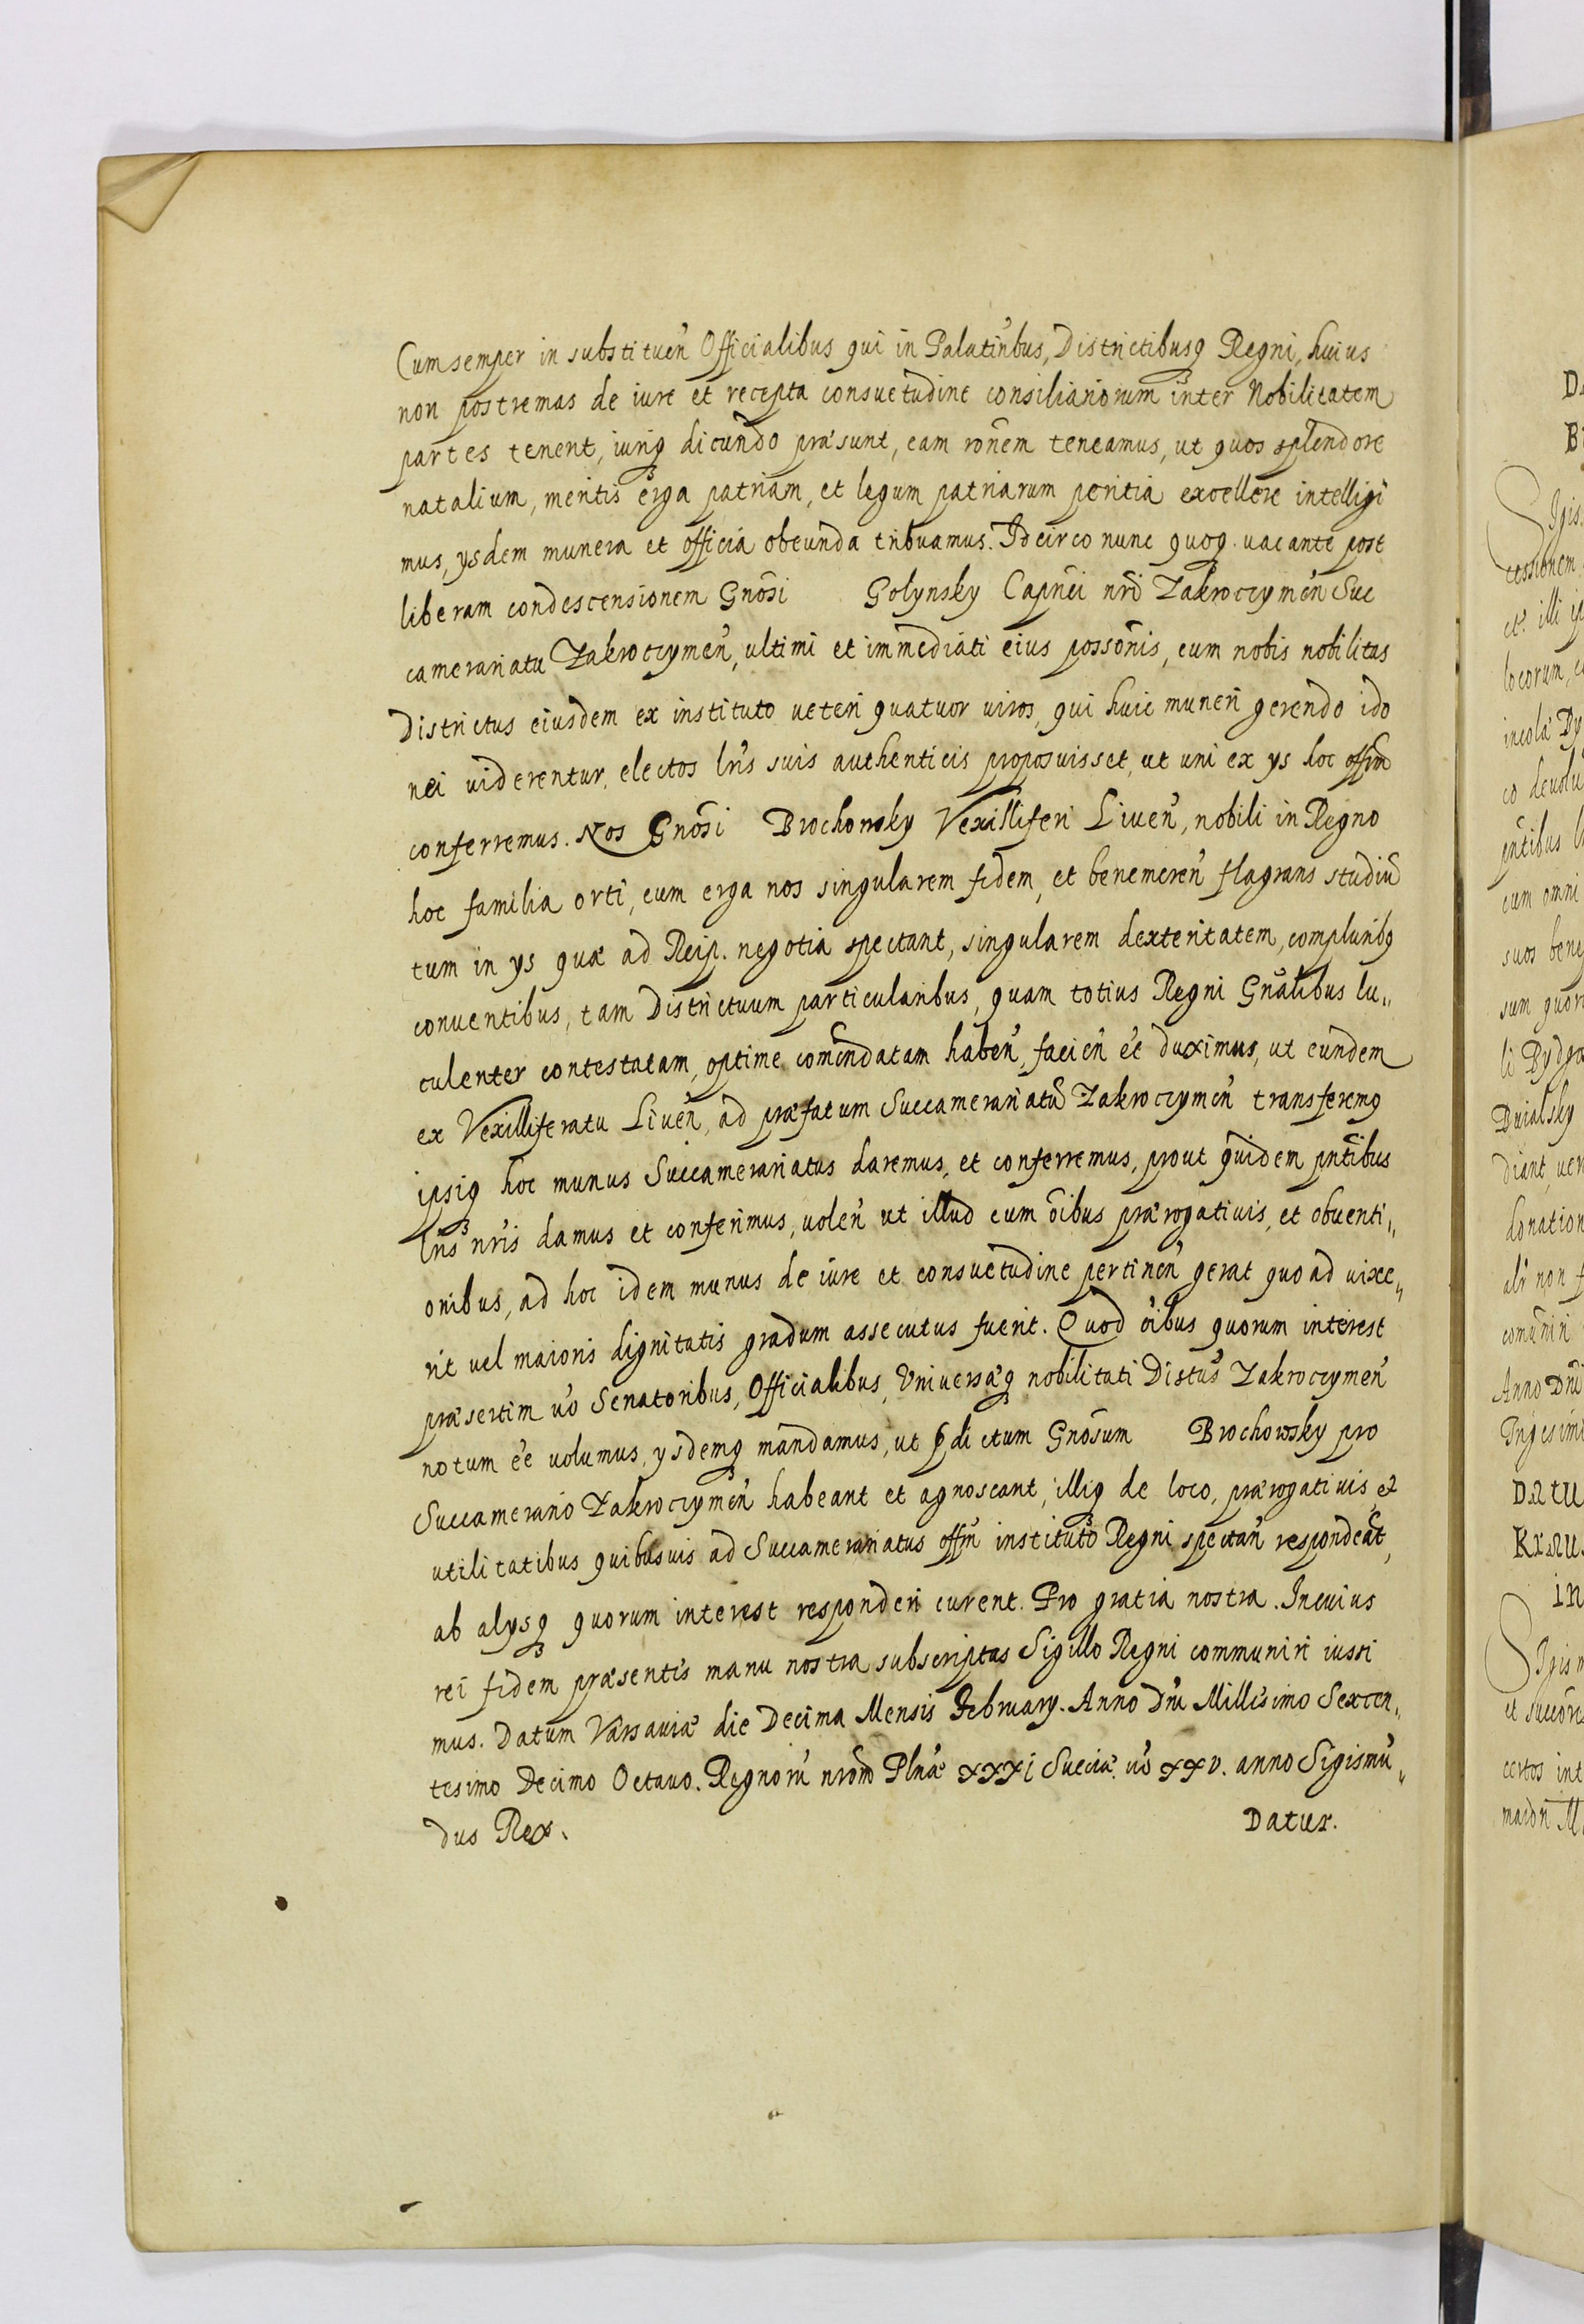 Cum semper in substituen̄ Officialibus qui in Palatin̄bus, Districtibusq Regni, huius
non postremas de iure et recepta consuetudine consiliariorum inter Nobilitatem
partes tenent, iuriq dicundo præsunt, eam ronem̄ teneamus, ut quos splendore
natalium, meritis erga patriam, et legum patriarum peritia excellere intelligi
mus, ysdem munera et officia obeunda tribuamus. Idcirco nunc quoq uacante post
liberam condescensionem Gnōsi Golynsky Capn̄ei nrī Zakroczymen̄ Suc
camerariatu Zakroczymen̄, ultimi et immediati eius possōnis, cum nobis nobilitas
Districtus eiusdem ex instituto ueteri quatuor uiros, qui huic muneri gerendo ido
nei uiderentur, electos lrīs suis authenticis proposuisset, ut uni ex ys hoc offm̄
conferremus. Nos Gnōsi Brochowsky Vexilliferi Liuen̄, nobili in Regno
hoc familia orti, cum erga nos singularem fidem, et benemeren̄ flagrans studiū
tum in ys quæ ad Reip. negotia spectant, singularem dexteritatem, complurib9
conuentibus, tam Districtuum particularibus, quam totius Regni Gnālibus lu„
culenter contestatam, optime comēndatam haben̄, facien̄ ēe duximus, ut eundem
ex Vexilliferatu Liuen̄, ad præfatum Succamerariatū Zakroczymen̄ transferem9
ipsiq hoc munus Succamerariatus daremus, et conferremus, prout quidem pn̄tibus
lrīs nrīs damus et conferimus, uolen̄ ut illud cum ōibus prærogatiuis, et obuenti„
onibus, ad hoc idem munus de iure et consuetudine pertinen̄ gerat quoad uixe„
rit uel maioris dignitatis gradum assecutus fuerit. Quod ōibus quorum interest
præsertim uō Senatoribus, Officialibus, Vniuersæq nobilitati Distūs Zakroczymen̄
notum ēe uolumus, ysdemq mandamus, ut p̱dictum Gnōsum Brochowsky pro
Succamerario Zakroczymen̄ habeant et agnoscant, illiq de loco, prærogatiuis et
utilitatibus quibusuis ad Succamerariatus offm̄ instituto Regni spectan̄ respondeāt,
ab alysq quorum interest responderi curent. Pro gratia nostra. In cuius
rei fidem præsentis manu nostra subscriptas Sigillo Regni communiri iussi
mus. Datum Varsauiæ die Decima Mensis February. Anno Dn̄i Millisimo Sexcen„
tesimo Decimo Octauo. Regnorū nrōm Pln̄æ XXXi Sueciæ uō XXV. anno Sigismū„
dus Rex.
Datur.